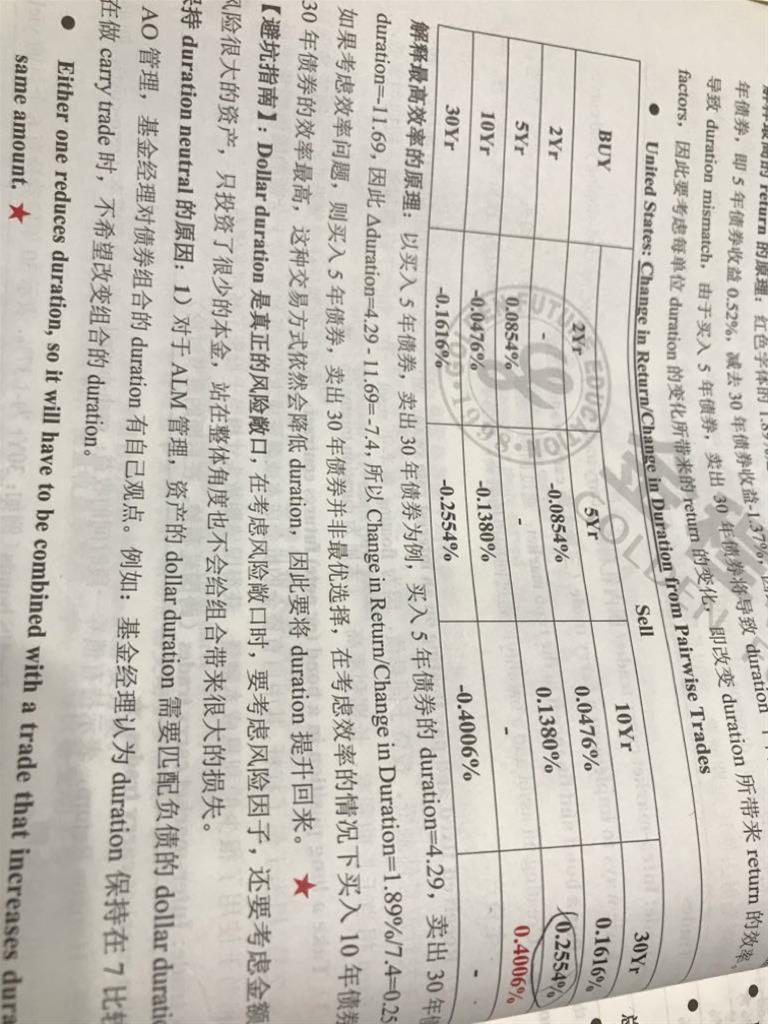 解释最高的 return 的原理：红色字体的 1.89%
年债券，即 5 年债券收益 0.52%，减去 30 年债券收益-1.37%，
导致 duration mismatch，由于买入 5 年债券，卖出 30 年债券将导致 duration
factors，因此要考虑每单位 duration 的变化所带来的 return 的变化，即改变 duration 所带来 return 的效率，
● United States: Change in Return/Change in Duration from Pairwise Trades
Sell
BUY 2Yr 5Yr 10Yr 30Yr
2Yr - -0.0854% 0.0476% 0.1616%
5Yr 0.0854% - 0.1380% 0.2554%
10Yr -0.0476% -0.1380% - 0.4006%
30Yr -0.1616% -0.2554% -0.4006% -
解释最高效率的原理：以买入 5 年债券，卖出 30 年债券为例，买入 5 年债券的 duration=4.29，卖出 30 年
duration=-11.69，因此 Δduration=4.29 - 11.69= -7.4，所以 Change in Return/Change in Duration=1.89%/7.4=0.25
如果考虑效率问题，则买入 5 年债券，卖出 30 年债券并非最优选择，在考虑效率的情况下买入 10 年债券
30 年债券的效率最高，这种交易方式依然会降低 duration，因此要将 duration 提升回来。★
【避坑指南】：Dollar duration 是真正的风险敞口，在考虑风险敞口时，要考虑风险因子，还要考虑金额
风险很大的资产，只投资了很少的本金，站在整体角度也不会给组合带来很大的损失。
保持 duration neutral 的原因：1）对于 ALM 管理，资产的 dollar duration 需要匹配负债的 dollar durati
AO 管理，基金经理对债券组合的 duration 有自己观点。例如：基金经理认为 duration 保持在 7 比较
在做 carry trade 时，不希望改变组合的 duration。
● Either one reduces duration, so it will have to be combined with a trade that increases dura
same amount. ★
GOLDEN FUTURE EDUCATION
1998